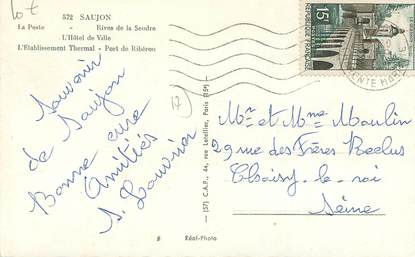 10 F
572 SAUJON
La Poste - Rives de la Seudre
L'Hôtel de Ville
L'Établissement Thermal - Port de Ribérou
Souvenir
de Saujon
Bonne cure
Amitiés
17
15F
POSTES
RÉPUBLIQUE FRANÇAISE
(57) C.A.P., 44, rue Letellier, Paris (15e)
Mr et Mme Moulin
29 rue des Frères Reclus
Choisy-le-roi
Seine
8 Réal-Photo